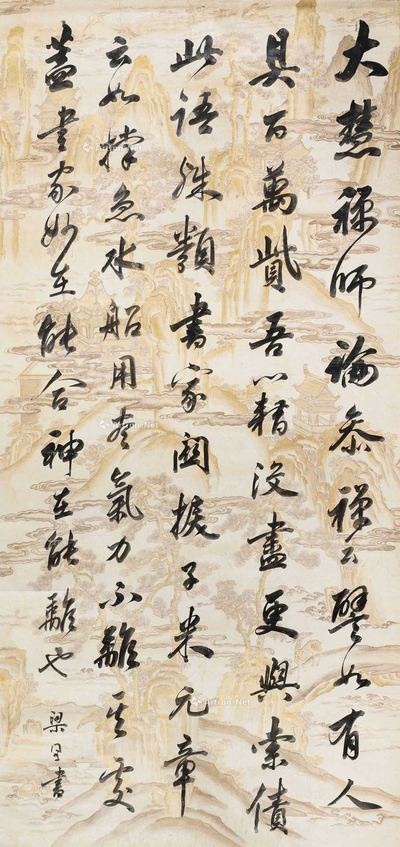 大慧禪師論參禪云譬如有人
具百萬貲吾以籍没盡更與索債
此語殊類書家関捩子米元章
云如撑急水船用盡氣力不離其處
蓋書家妙在能合神在能離也
梁同書